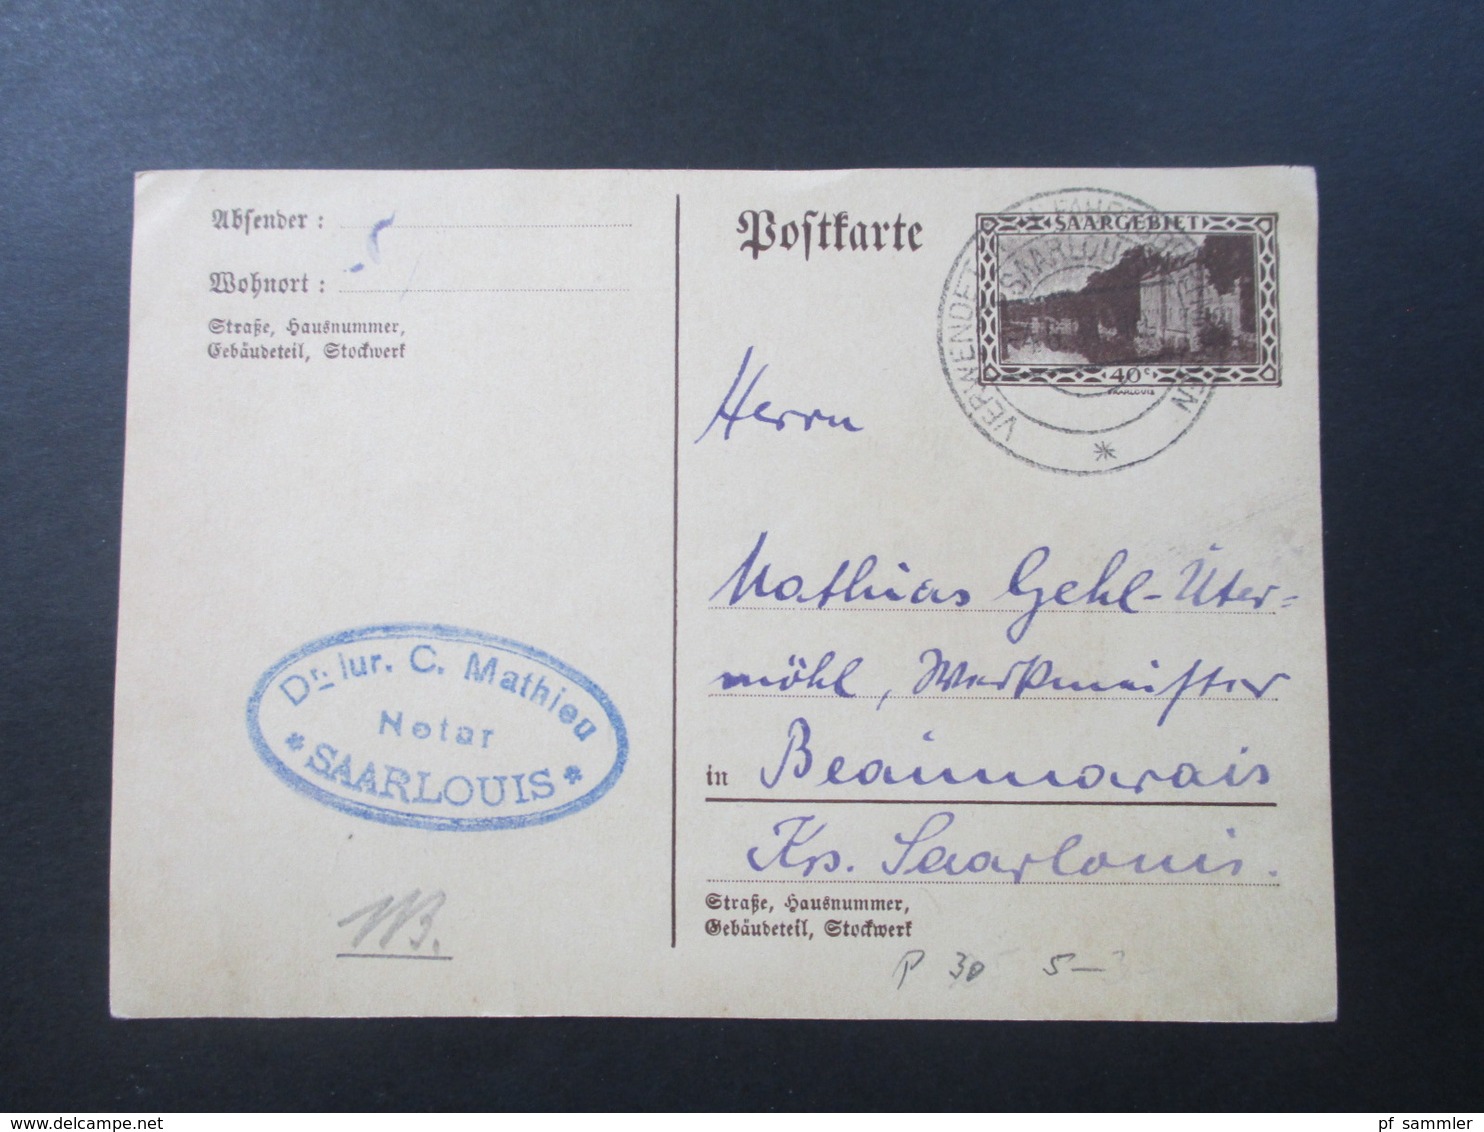 Absender :
Wohnort :
Straße, Hausnummer,
Gebäudeteil, Stockwerk
Postkarte
SAARGEBIET
40 c.
SAARLOUIS
SAARLOUIS
VERWENDET
Herrn
Mathias Gehl-Üter=
möhl, Werkmeister
in Beaumarais
Krs. Saarlouis.
Straße, Hausnummer,
Gebäudeteil, Stockwerk
Dr. iur. C. Mathieu
Notar
* SAARLOUIS *
P 30 5-
www.delcampe.net
pf_sammler